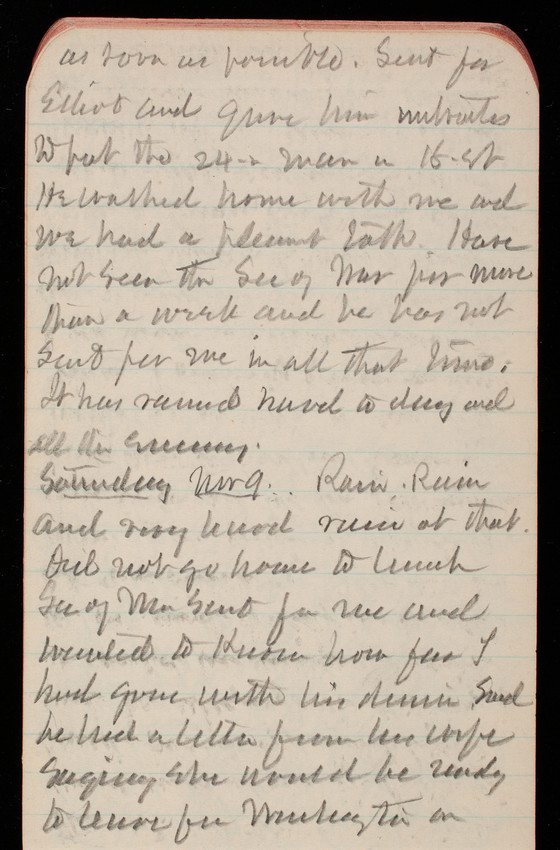 as soon as possible. Sent for
Elliot and gave him
to put the 24 - in
He walked home with me and
we had a pleasant talk. Have
not seen the Sec of War for more
than a week and he has not
sent for me in all that time.
It has rained hard to day and
all the evening.
Saturday Nov 9. Rain, Rain
and very hard rain at that.
Did not go home to lunch
Sec of War sent for me and
wanted to know how far I
had gone with his Said
he had a letter from his wife
saying she would be ready
to leave for Washington on